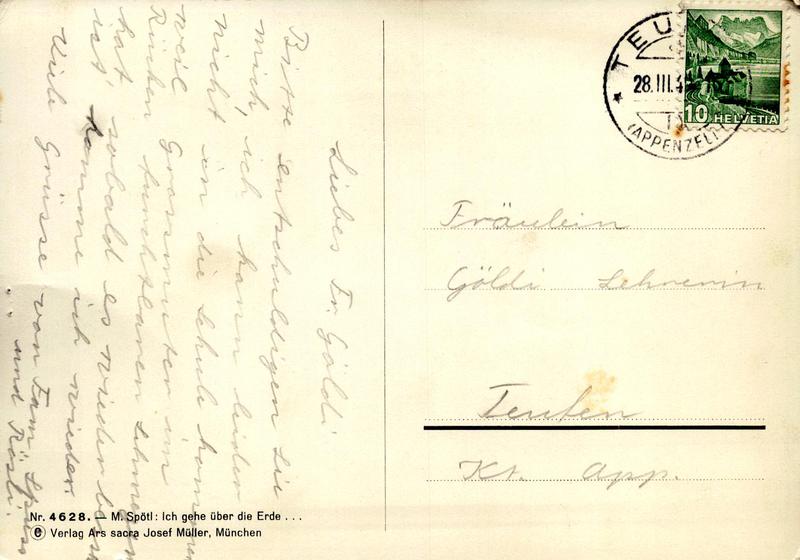 Liebes Fr. Göldi
Bitte entschuldigen Sie
mich, ich kann leider
nicht in die Schule kommen
weil Grossmutter im
Rücken furchtbaren Schmerzen
hat, sobald es wieder besser
ist, komme ich wieder.
Viele Grüsse von Fam.
und Rösli.
Nr. 4628. — M. Spötl: Ich gehe über die Erde . . .
© Verlag Ars sacra Josef Müller, München
TEUFEN
28.III.4
(APPENZELL)
10 HELVETIA
Fräulein
Göldi Lehrerin
Teufen
Kt. App.